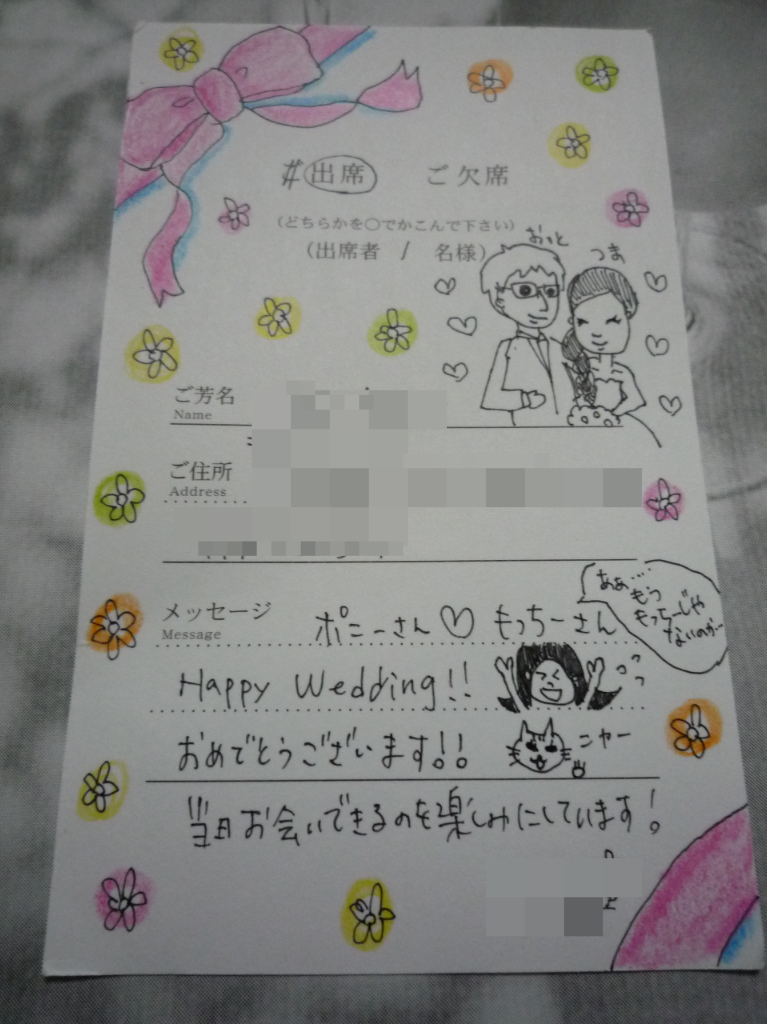 出席 ご欠席
(どちらかを○でかこんで下さい)
(出席者 / 名様)
おっと
つま
ご芳名
Name
ご住所
Address
メッセージ
Message
ああ…
もう
もっちーじゃ
ないのか…
ポニーさん♡もっちーさん
Happy Wedding!!
おめでとうございます!!
ニャー
当日お会いできるのを楽しみにしています!